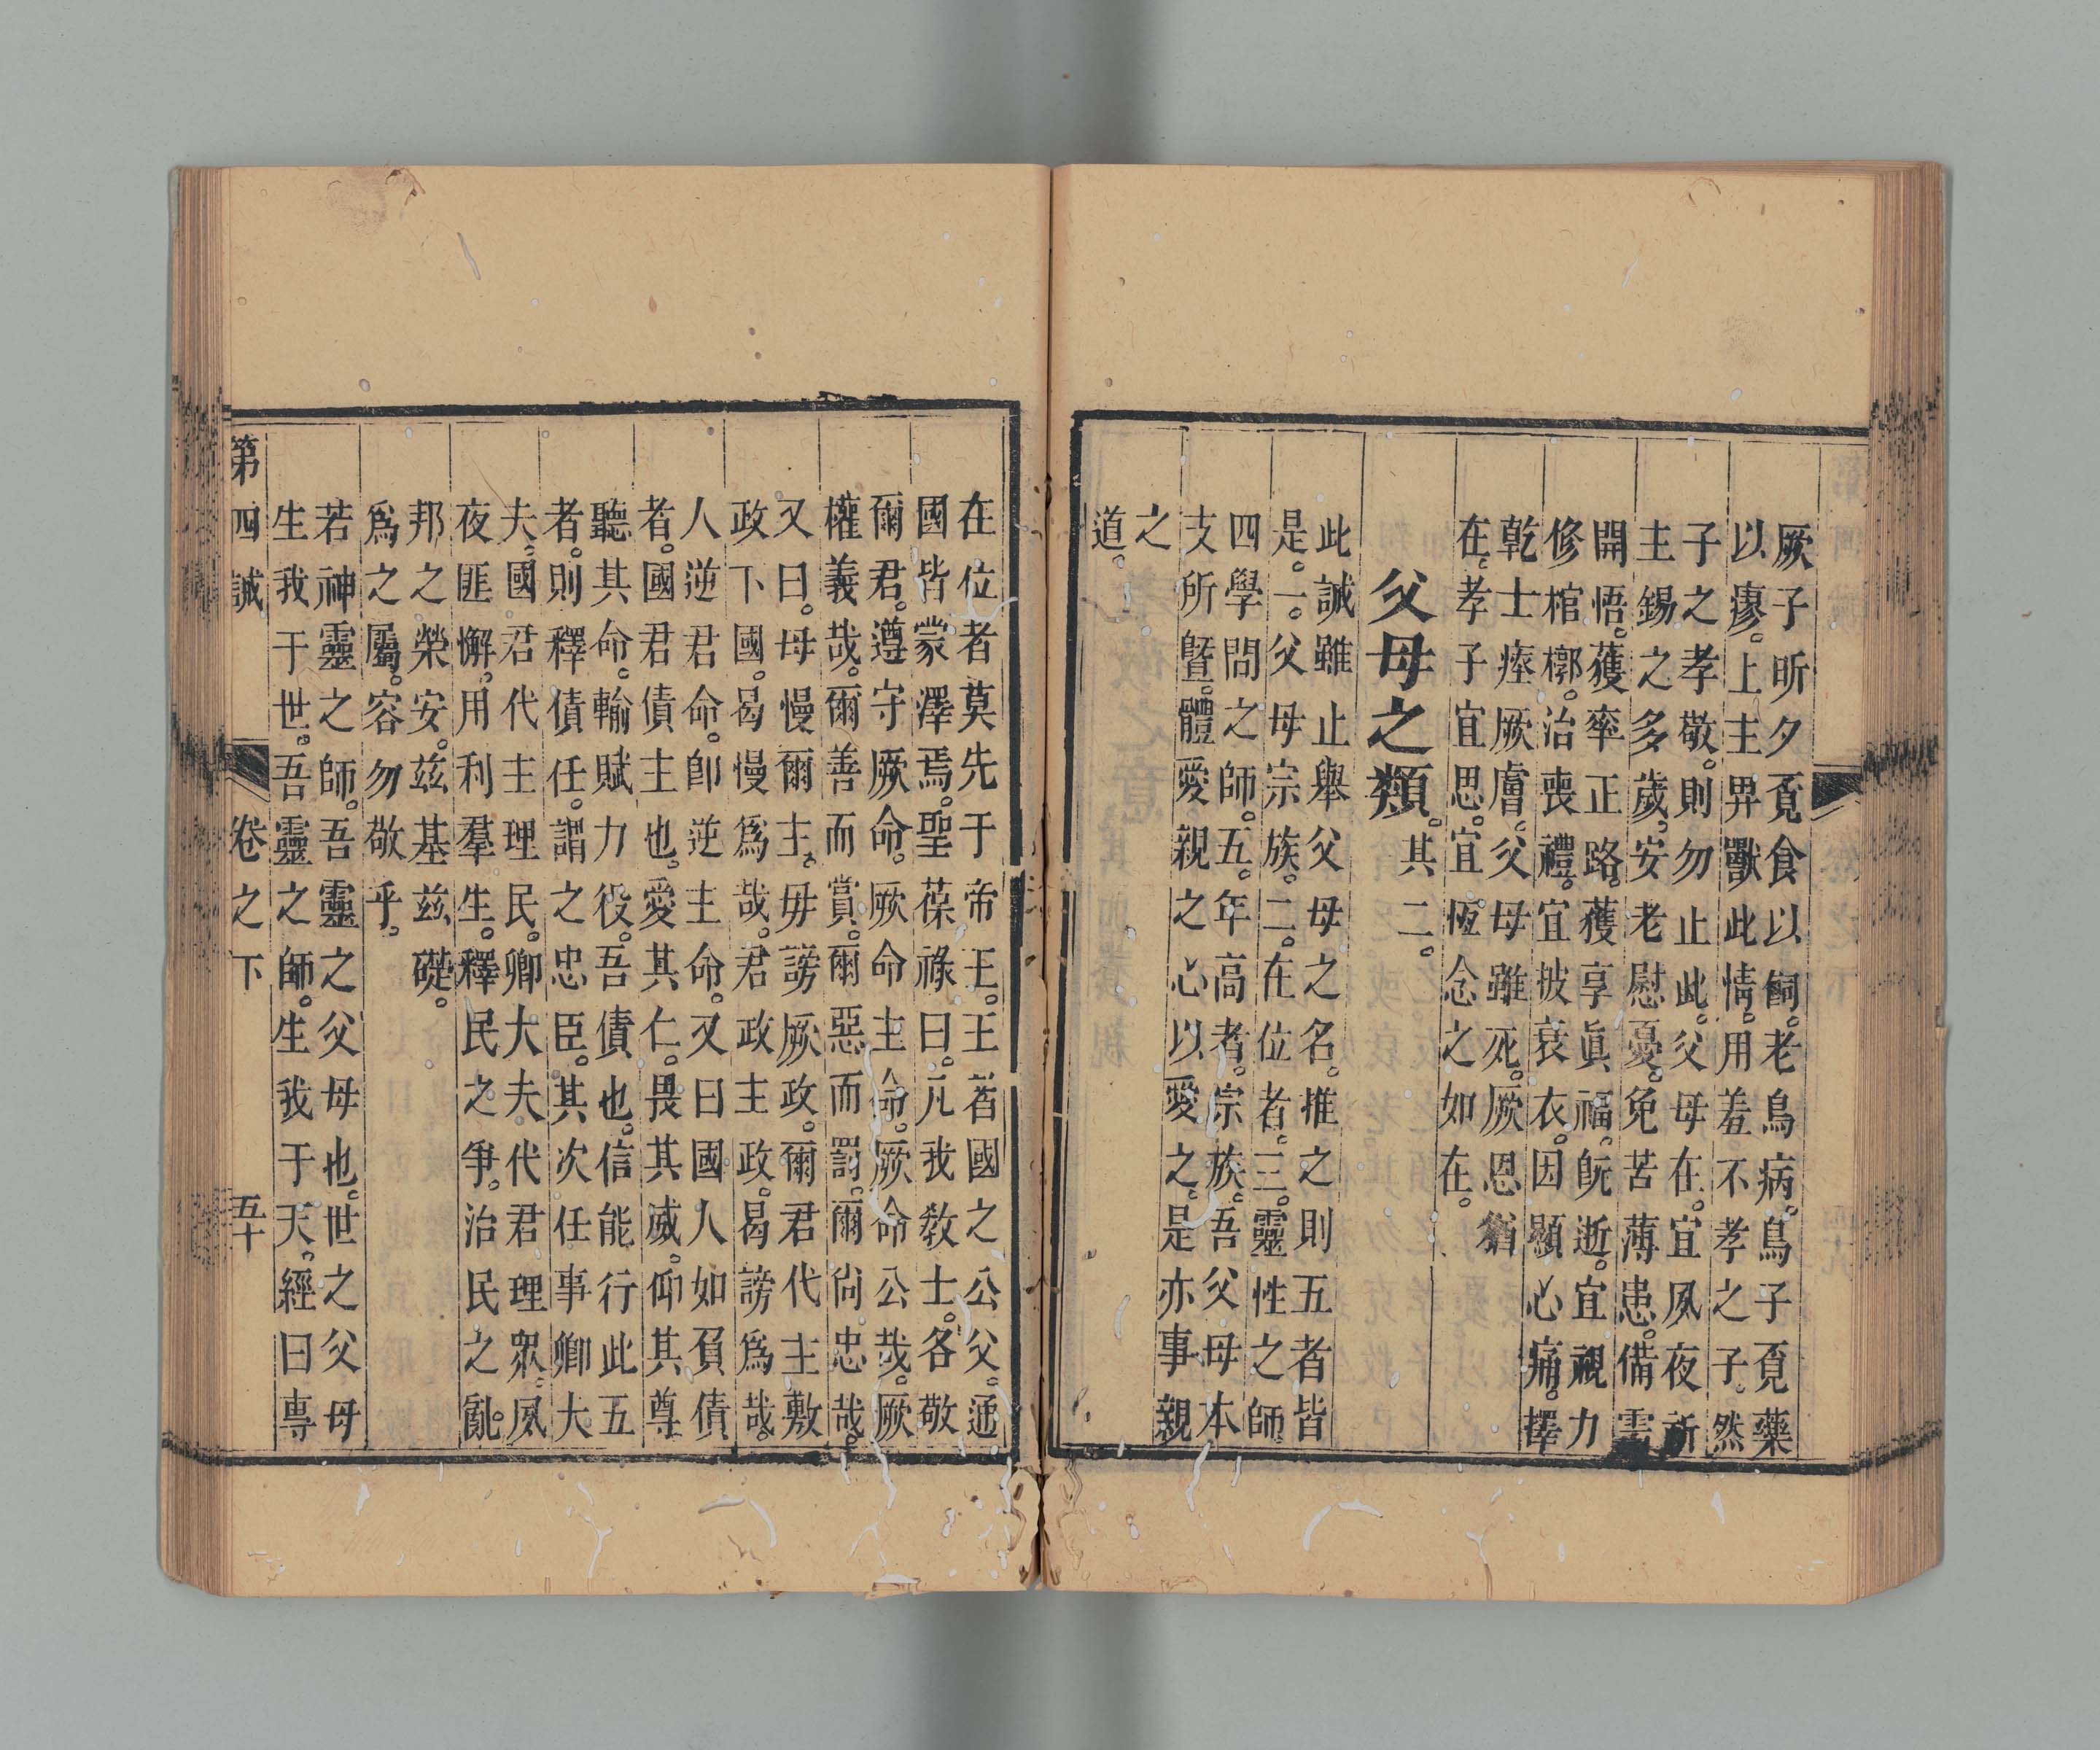 厥子昕夕覓食以飼。老鳥病。鳥子覓藥
以瘳。上主畀獸此情。用羞不孝之子。然
子之孝敬。則勿止此。父母在。宜夙夜祈
主錫之多歲。安老慰憂。免苦薄患。備需
開悟。獲率正路。獲享眞福。既逝。宜視力
修棺槨。治喪禮。宜披衰衣。因顯心痛。擇
乾士瘞厥膚。父母雖死。厥恩猶
在。孝子宜思。宜恆念之如在。
父母之類。其二。
此誡雖止舉父母之名。推之則五者皆
是。一。父母宗族。二。在位者。三。靈性之師
四學問之師。五。年高者。宗族。吾父母本
支所曁。體愛親之心以愛之。是亦事親
之
道。
在位者莫先于帝王。王者國之公父。通
國皆蒙澤焉。聖葆祿曰。凡我敎士。各敬
爾君。遵守厥命。厥命主命。厥命公哉。厥
權義哉。爾善而賞。爾惡而罰。爾尚忠哉。
又曰。毋慢爾主。毋謗厥政。爾君代主敷
政下國。曷慢爲哉。君政主政。曷謗爲哉。
人逆君命。卽逆主命。又曰國人如負債
者。國君債主也。愛其仁。畏其威。仰其尊
聽其命。輸賦力役。吾債也。信能行此五
者。則釋債任。謂之忠臣。其次任事卿大
夫。國君代主理民。卿大夫代君理衆。夙
夜匪懈。用利羣生。釋民之爭。治民之亂。
邦之榮安。茲基茲礎。
爲之屬。容勿敬乎。
若神靈之師。吾靈之父母也。世之父母
生我于世。吾靈之師。生我于天。經曰專
第四誡
卷之下
五十